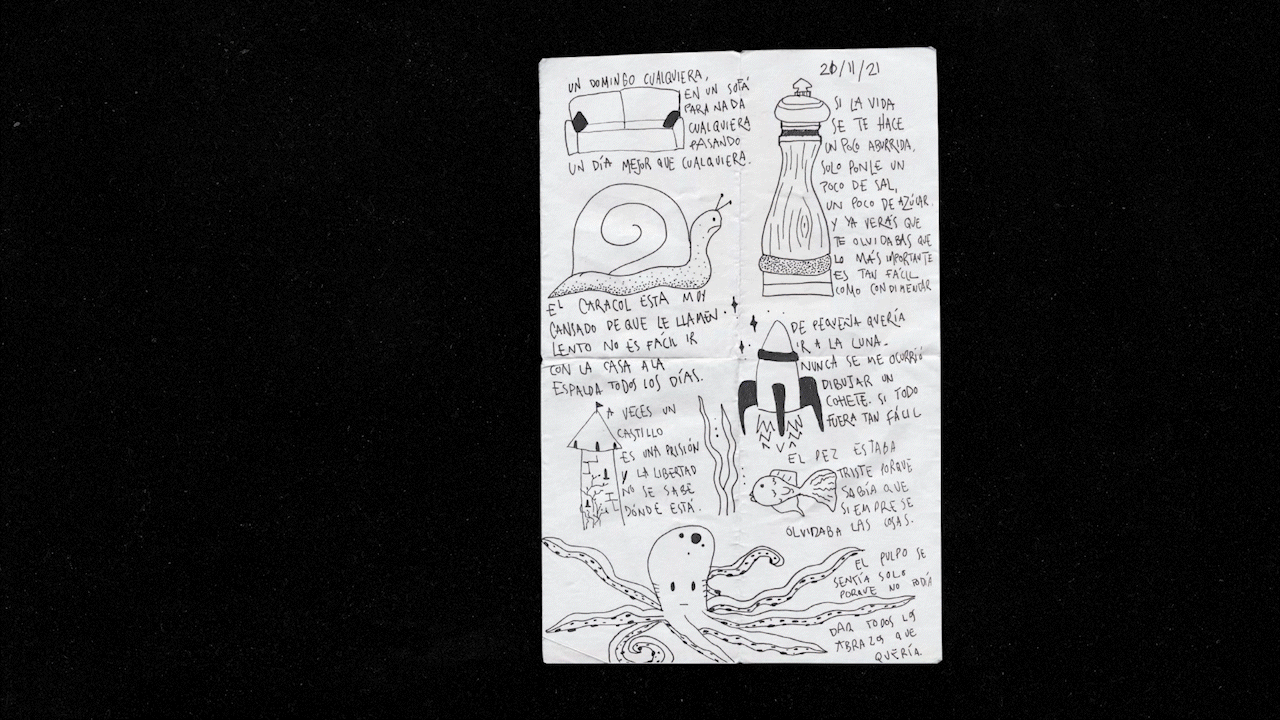 UN DOMINGO CUALQUIERA,
EN UN SOFÁ
PARA NADA
CUALQUIERA
PASANDO
UN DÍA MEJOR QUE CUALQUIERA.
EL CARACOL ESTA MUY
CANSADO DE QUE LE LLAMEN
LENTO NO ES FÁCIL IR
CON LA CASA A LA
ESPALDA TODOS LOS DÍAS.
A VECES UN
CASTILLO
ES UNA PRISIÓN
Y LA LIBERTAD
NO SE SABE
DÓNDE ESTÁ.
26/11/21
SI LA VIDA
SE TE HACE
UN POCO ABURRIDA,
SOLO PONLE UN
POCO DE SAL,
UN POCO DE AZÚCAR.
Y YA VERÁS QUE
TE OLVIDABAS QUE
LO MÁS IMPORTANTE
ES TAN FÁCIL
COMO CONDIMENTAR
DE PEQUEÑA QUERÍA
IR A LA LUNA.
NUNCA SE ME OCURRIÓ
DIBUJAR UN
COHETE. SI TODO
FUERA TAN FÁCIL
EL PEZ ESTABA
TRISTE PORQUE
SABÍA QUE
SIEMPRE SE
OLVIDABA LAS COSAS.
EL PULPO SE
SENTÍA SOLO
PORQUE NO PODÍA
DAR TODOS LOS
ABRAZOS QUE
QUERÍA.